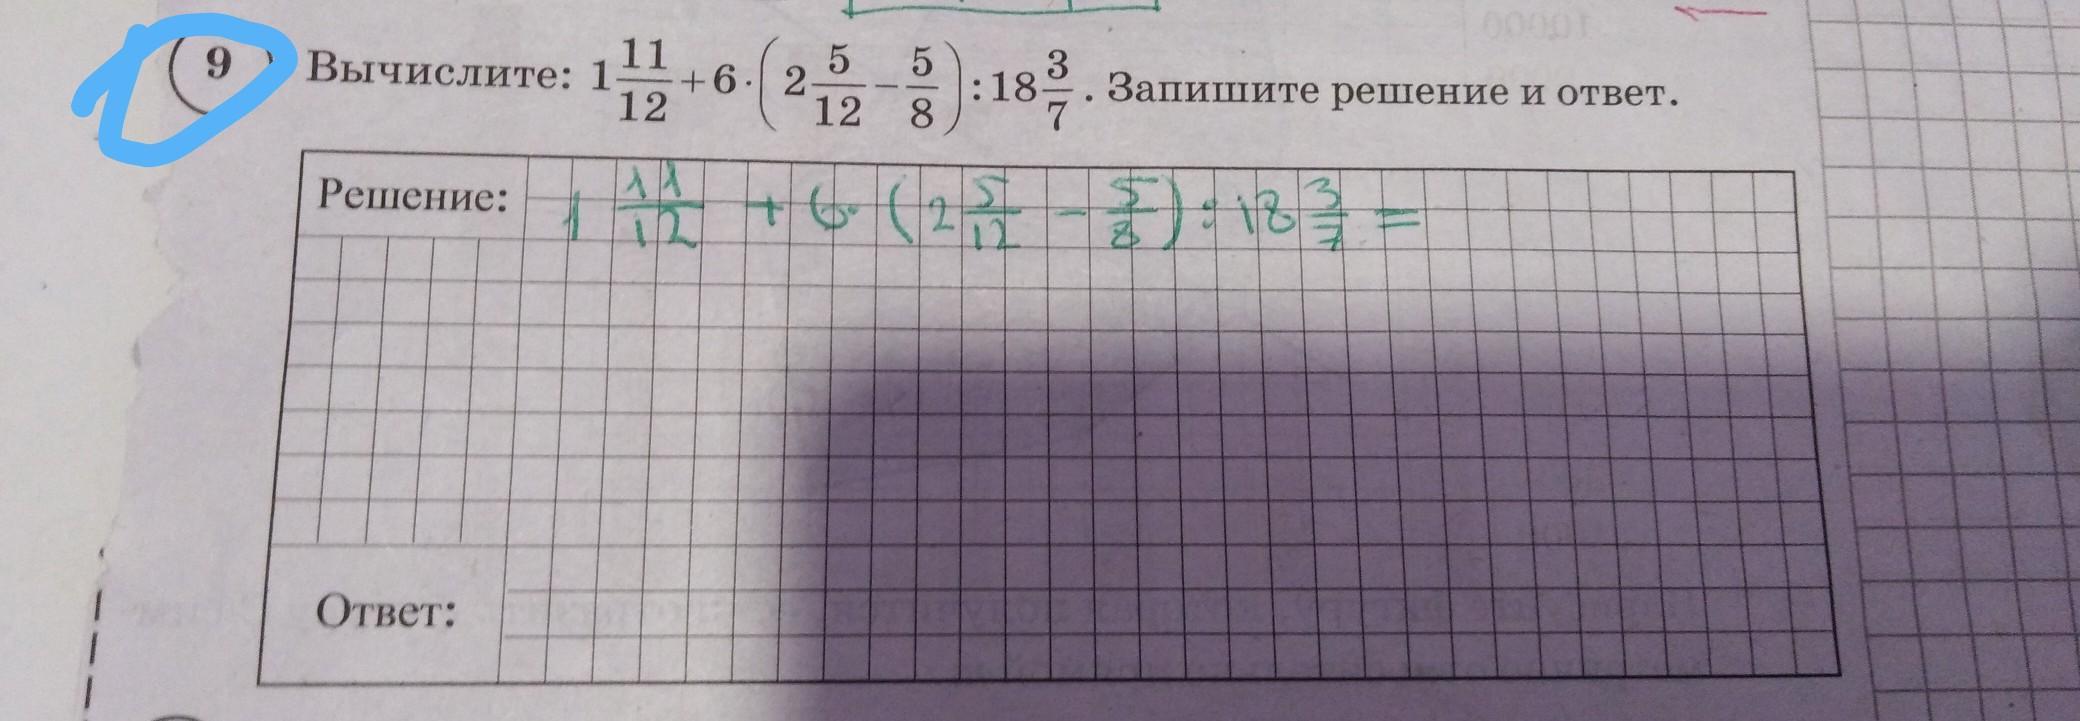 9 Вычислите: 1 11/12 + 6 · (2 5/12 − 5/8) : 18 3/7. Запишите решение и ответ.
Решение: 1 11/12 + 6 · (2 5/12 − 5/8) : 18 3/7 =
Ответ: